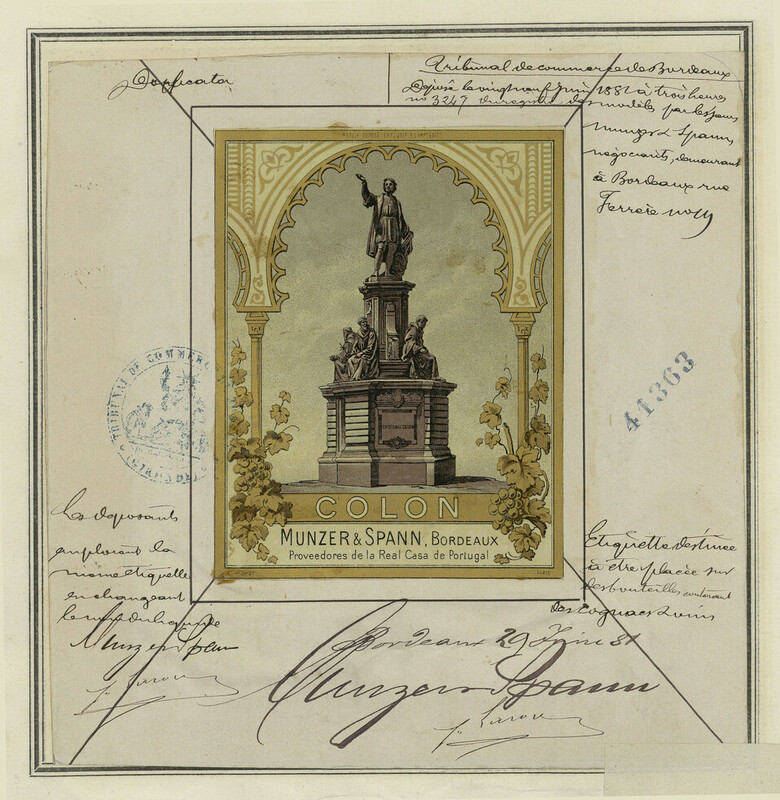 Duplicata
Tribunal de commerce de Bordeaux
Déposé le vingt neuf Juin 1881 à trois heures
no 3247 du registre des modèles par les sieurs
Munzer & Spann
négociants, demeurant
à Bordeaux rue
Ferrère no
COLON
MUNZER & SPANN, BORDEAUX
Proveedores de la Real Casa de Portugal
TRIBUNAL DE COMMERCE
(GIRONDE)
41363
Les déposants
emploient la
même étiquette
en changeant
le nom du liquide
Munzer Spann
Etiquette destinée
à être placée sur
des bouteilles contenant
des Cognacs & vins
Bordeaux 29 Juin 81
Munzer Spann